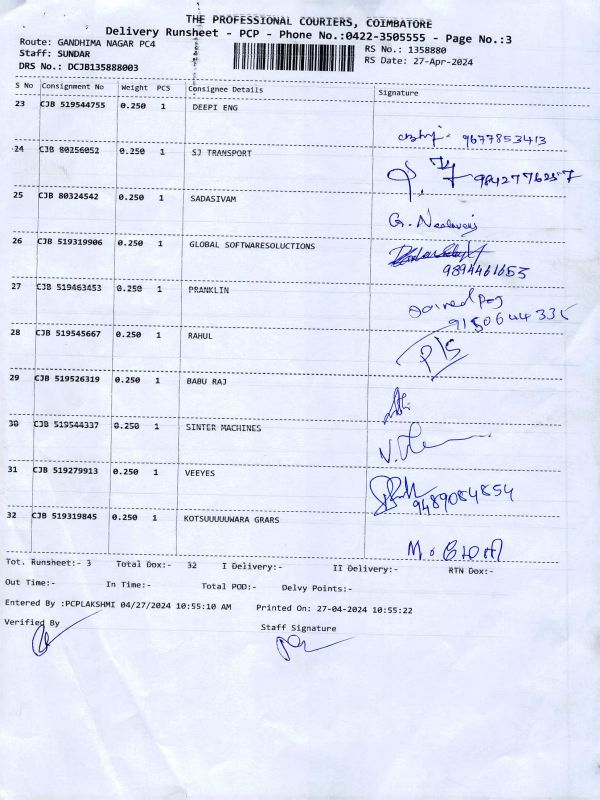 THE PROFESSIONAL COURIERS, COIMBATORE
Delivery Runsheet - PCP - Phone No.:0422-3505555 - Page No.:3
Route: GANDHIMA NAGAR PC4 RS No.: 1358880
Staff: SUNDAR RS Date: 27-Apr-2024
DRS No.: DCJB135888003
S No Consignment No Weight PCS Consignee Details Signature
23 CJB 519544755 0.250 1 DEEPI ENG
9677853413
24 CJB 80256052 0.250 1 SJ TRANSPORT
9842776257
25 CJB 80324542 0.250 1 SADASIVAM
G.
26 CJB 519319906 0.250 1 GLOBAL SOFTWARESOLUCTIONS
9894461653
27 CJB 519463453 0.250 1 PRANKLIN
9150644335
28 CJB 519545667 0.250 1 RAHUL
P/S
29 CJB 519526319 0.250 1 BABU RAJ
30 CJB 519544337 0.250 1 SINTER MACHINES
31 CJB 519279913 0.250 1 VEEYES
9489084854
32 CJB 519319845 0.250 1 KOTSUUUUUWARA GRARS
Tot. Runsheet:- 3 Total Dox:- 32 I Delivery:- II Delivery:- RTN Dox:-
Out Time:- In Time:- Total POD:- Delvy Points:-
Entered By :PCPLAKSHMI 04/27/2024 10:55:10 AM Printed On: 27-04-2024 10:55:22
Verified By Staff Signature